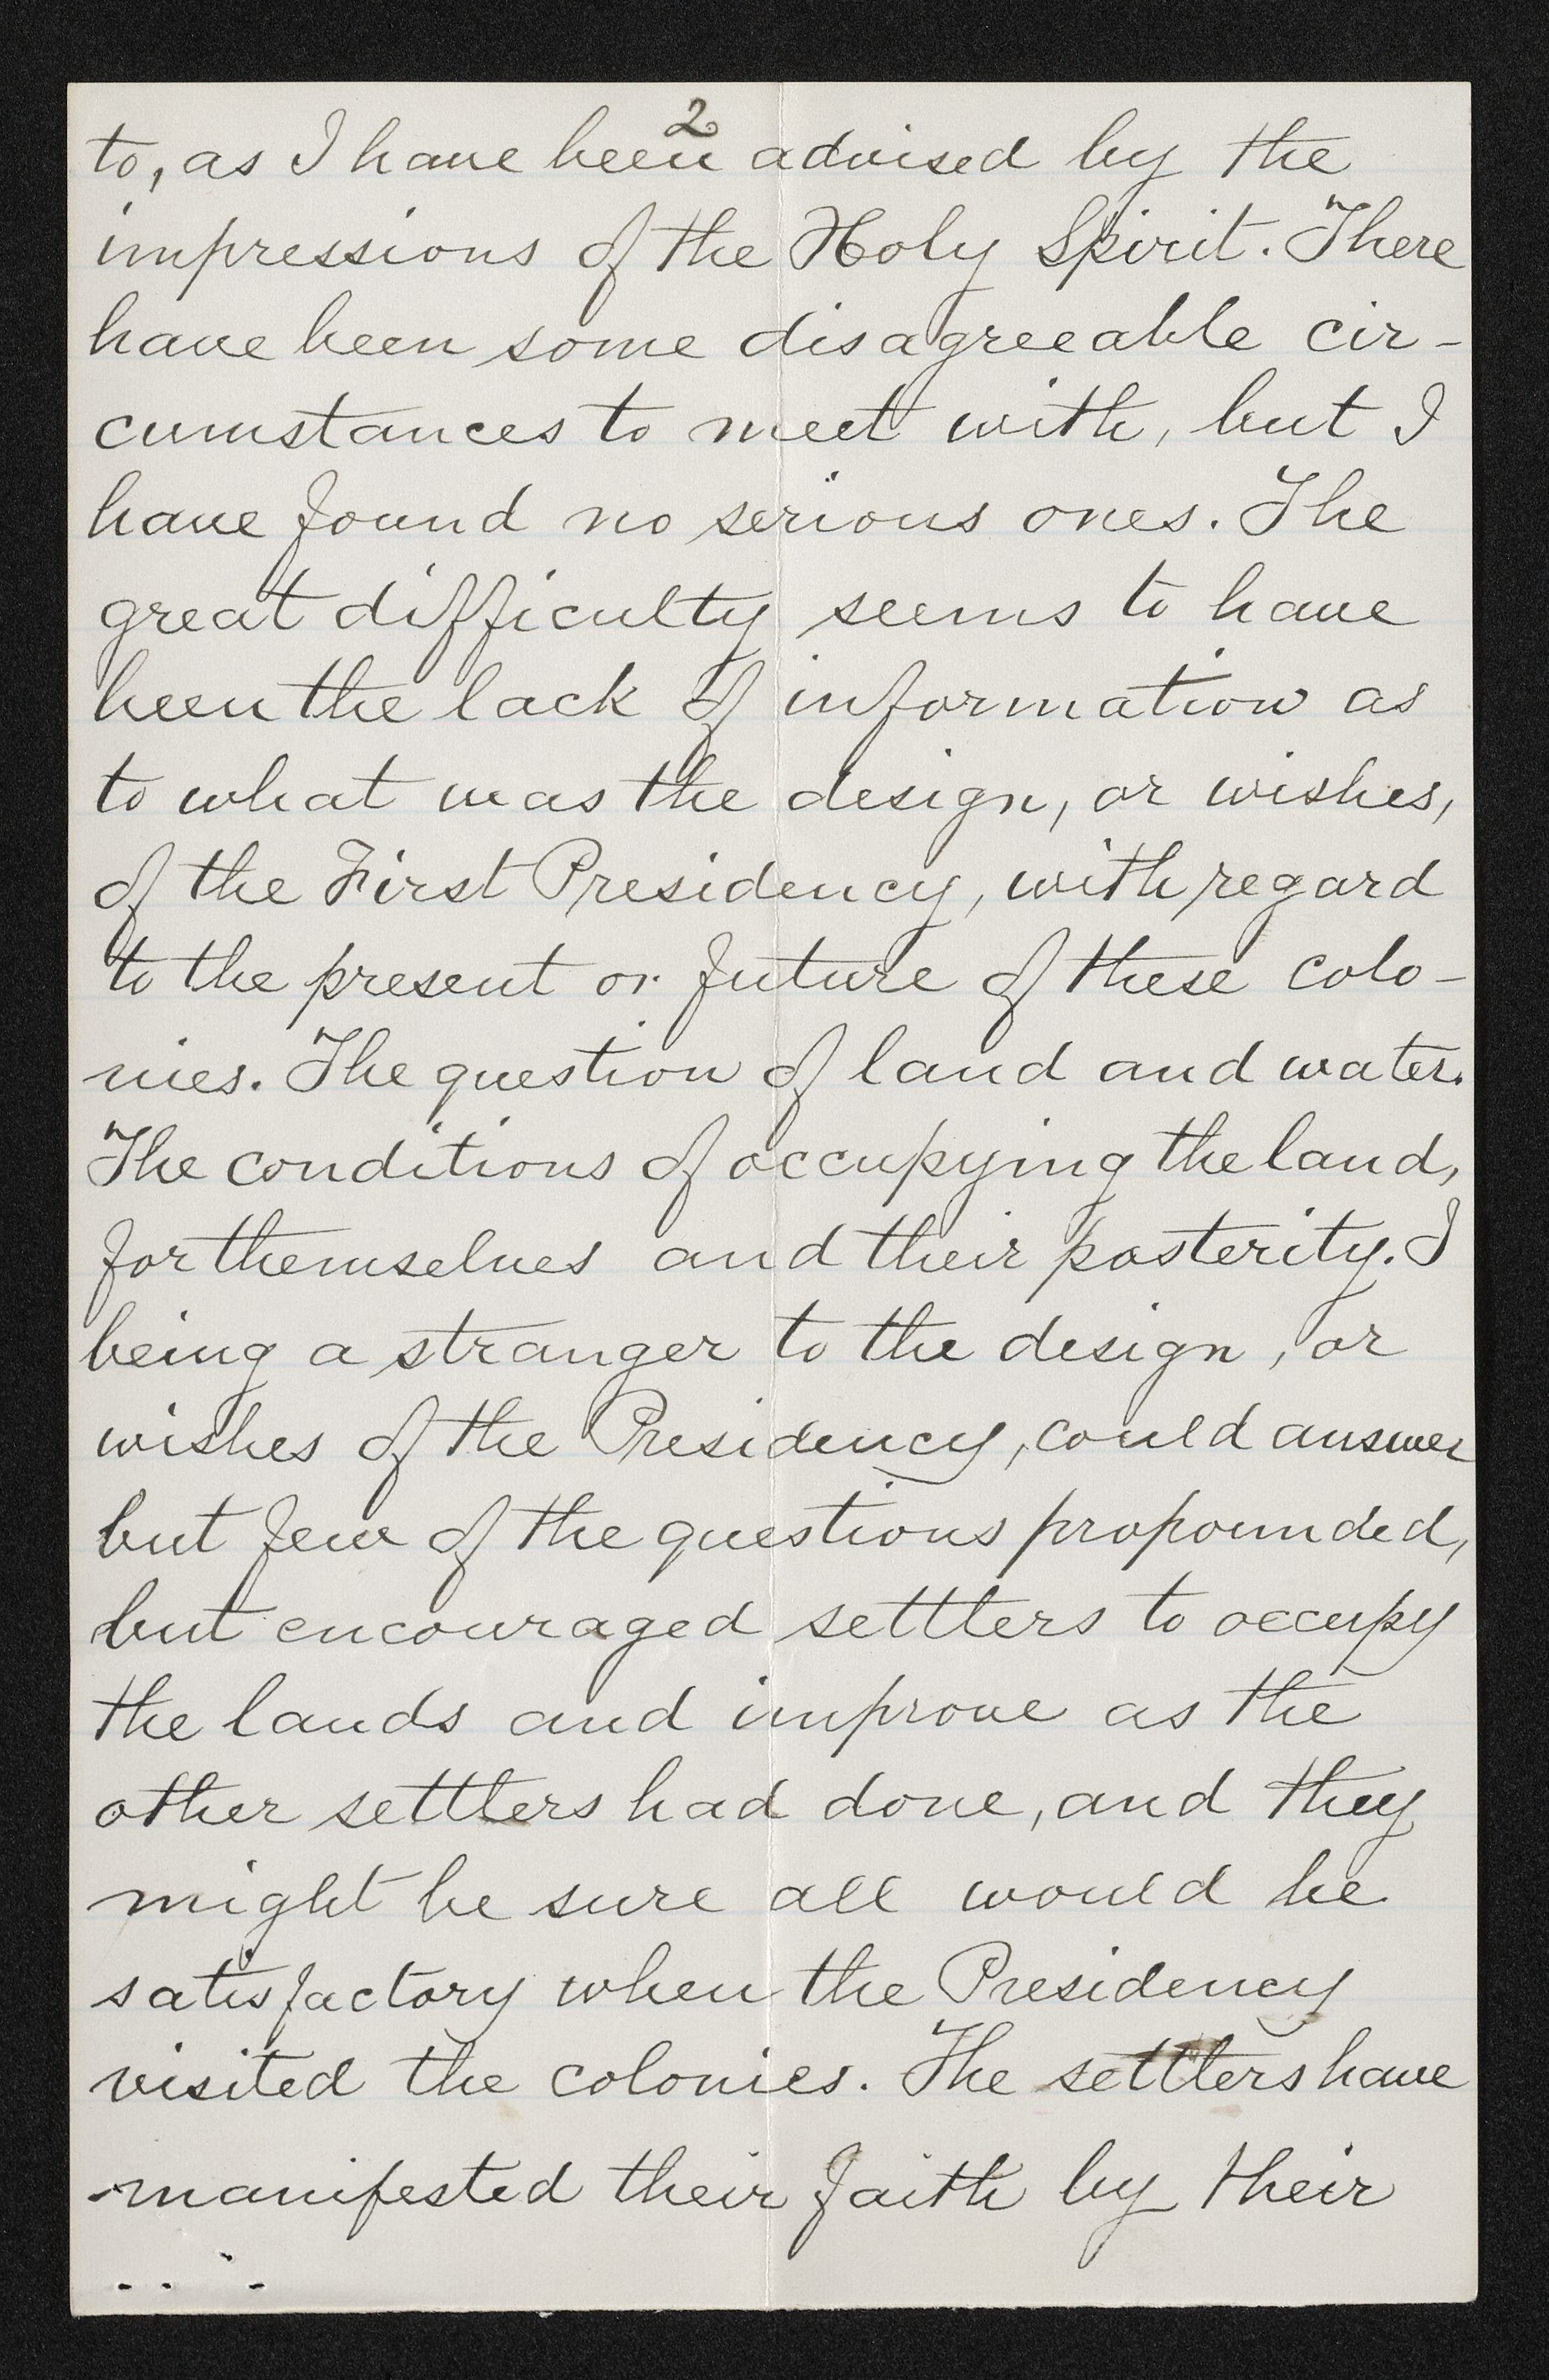 2
to, as I have been advised by the
impressions of the Holy Spirit. There
have been some disagreeable cir-
cumstances to meet with, but I
have found no serious ones. The
great difficulty seems to have
been the lack of information as
to what was the design, or wishes,
of the First Presidency, with regard
to the present or future of these colo-
nies. The question of land and water.
The conditions of occupying the land,
for themselves and their posterity. I
being a stranger to the design, or
wishes of the Presidency, could answer
but few of the questions propounded,
but encouraged settlers to occupy
the lands and improve as the
other settlers had done, and they
might be sure all would be
satisfactory when the Presidency
visited the colonies. The settlers have
manifested their faith by their